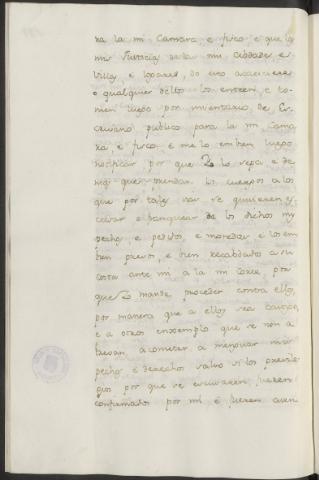 ra la mi Camara, e fisco e que los
mis Justicias de la mis Cibdades e
Villas e logares, do esto acaesciere
o qualquier dello los entren e to-
men luego por inventario de Es-
crivano publico para la mi Cama-
ra, e fisco, e me lo embien luego
notificar por que Yo lo sepa e de
mas que prendan los cuerpos a los
que por tales vias se quisieren es-
cusar e franquear de los dichos mis
pechos e pedidos, e monedas e los em-
bien presos, e bien recabdados a su
costa ante mi a la mi Corte, por
que Yo mande proceder contra ellos,
por manera que a ellos sea castigo,
e a otros enxemplo que se non a-
trevan acometer a menguar mis
pechos e derechos salvo si los previle-
gios por que se escusaren fueren
confirmados por mi e fueren asen